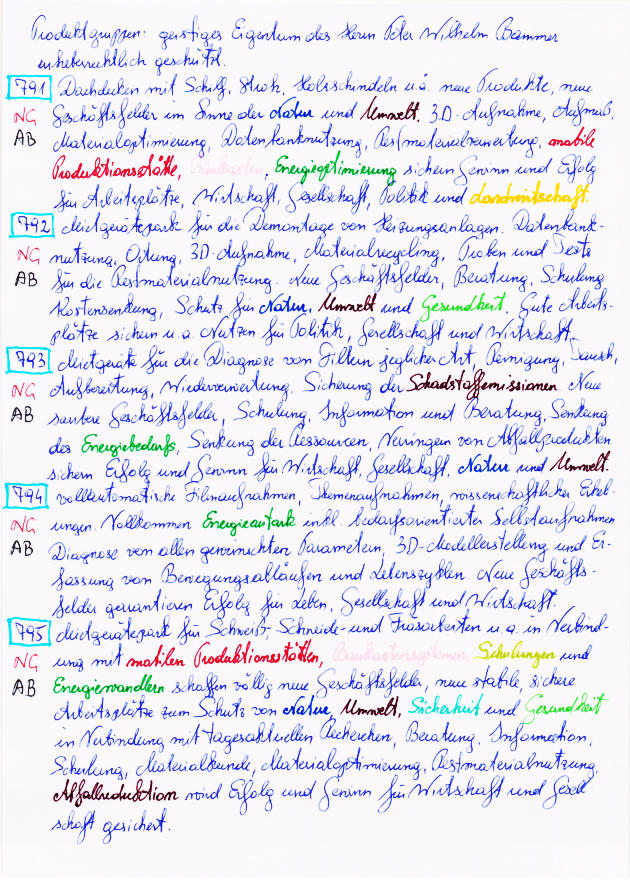 Produktgruppen: geistiges Eigentum des Herrn Peter Wilhelm Bammer
urheberrechtlich geschützt.
791 Dachdecken mit Schilf, Stroh, Holzschindeln u.ä. neue Produkte, neue
NG Geschäftsfelder im Sinne der Natur und Umwelt. 3D-Aufnahme, Aufmaß,
AB Materialoptimierung, Datenbanknutzung, Restmaterialverwertung, mobile
Produktionsstätte, Baukasten, Energieoptimierung sichern Gewinn und Erfolg
für Arbeitsplätze, Wirtschaft, Gesellschaft, Politik und Landwirtschaft.
792 Mietgerätepark für die Demontage von Heizungsanlagen. Datenbank-
NG nutzung, Ortung, 3D-Aufnahme, Materialrecycling, Proben und Tests
AB für die Restmaterialnutzung. Neue Geschäftsfelder, Beratung, Schulung
Kostensenkung, Schutz für Natur, Umwelt und Gesundheit. Gute Arbeits-
plätze sichern u.a. Nutzen für Politik, Gesellschaft und Wirtschaft.
793 Mietgeräte für die Diagnose von Filtern jeglicher Art, Reinigung, Tausch,
NG Aufbereitung, Wiederverwertung. Sicherung der Schadstoffemissionen. Neue
AB saubere Geschäftsfelder, Schulung, Information und Beratung, Senkung
des Energiebedarfs, Senkung der Ressourcen, Verringern von Abfallprodukten
sichern Erfolg und Gewinn für Wirtschaft, Gesellschaft, Natur und Umwelt.
794 vollautomatische Filmaufnahmen, Themenaufnahmen, wissenschaftlicher
NG ungen. Vollkommen Energieautark inkl. bedarfsorientierter Selbstaufnahmen
AB Diagnose von allen gewünschten Parametern, 3D-Modellerstellung und Er-
fassung von Bewegungsabläufen und Lebenszyklen. Neue Geschäfts-
felder garantieren Erfolg für Leben, Gesellschaft und Wirtschaft.
795 Mietgerätepark für Schweiß-, Schneide- und Fräsarbeiten u.a. in Verbind-
NG ung mit mobilen Produktionsstätten, Baukastensystemen, Schulungen und
AB Energiewandlern schaffen völlig neue Geschäftsfelder, neue stabile, sichere
Arbeitsplätze zum Schutz von Natur, Umwelt, Sicherheit und Gesundheit
in Verbindung mit tagesaktuellen Recherchen, Beratung, Information,
Schulung, Materialkunde, Materialoptimierung, Restmaterialnutzung,
Abfallreduktion wird Erfolg und Gewinn für Wirtschaft und Gesell
schaft gesichert.